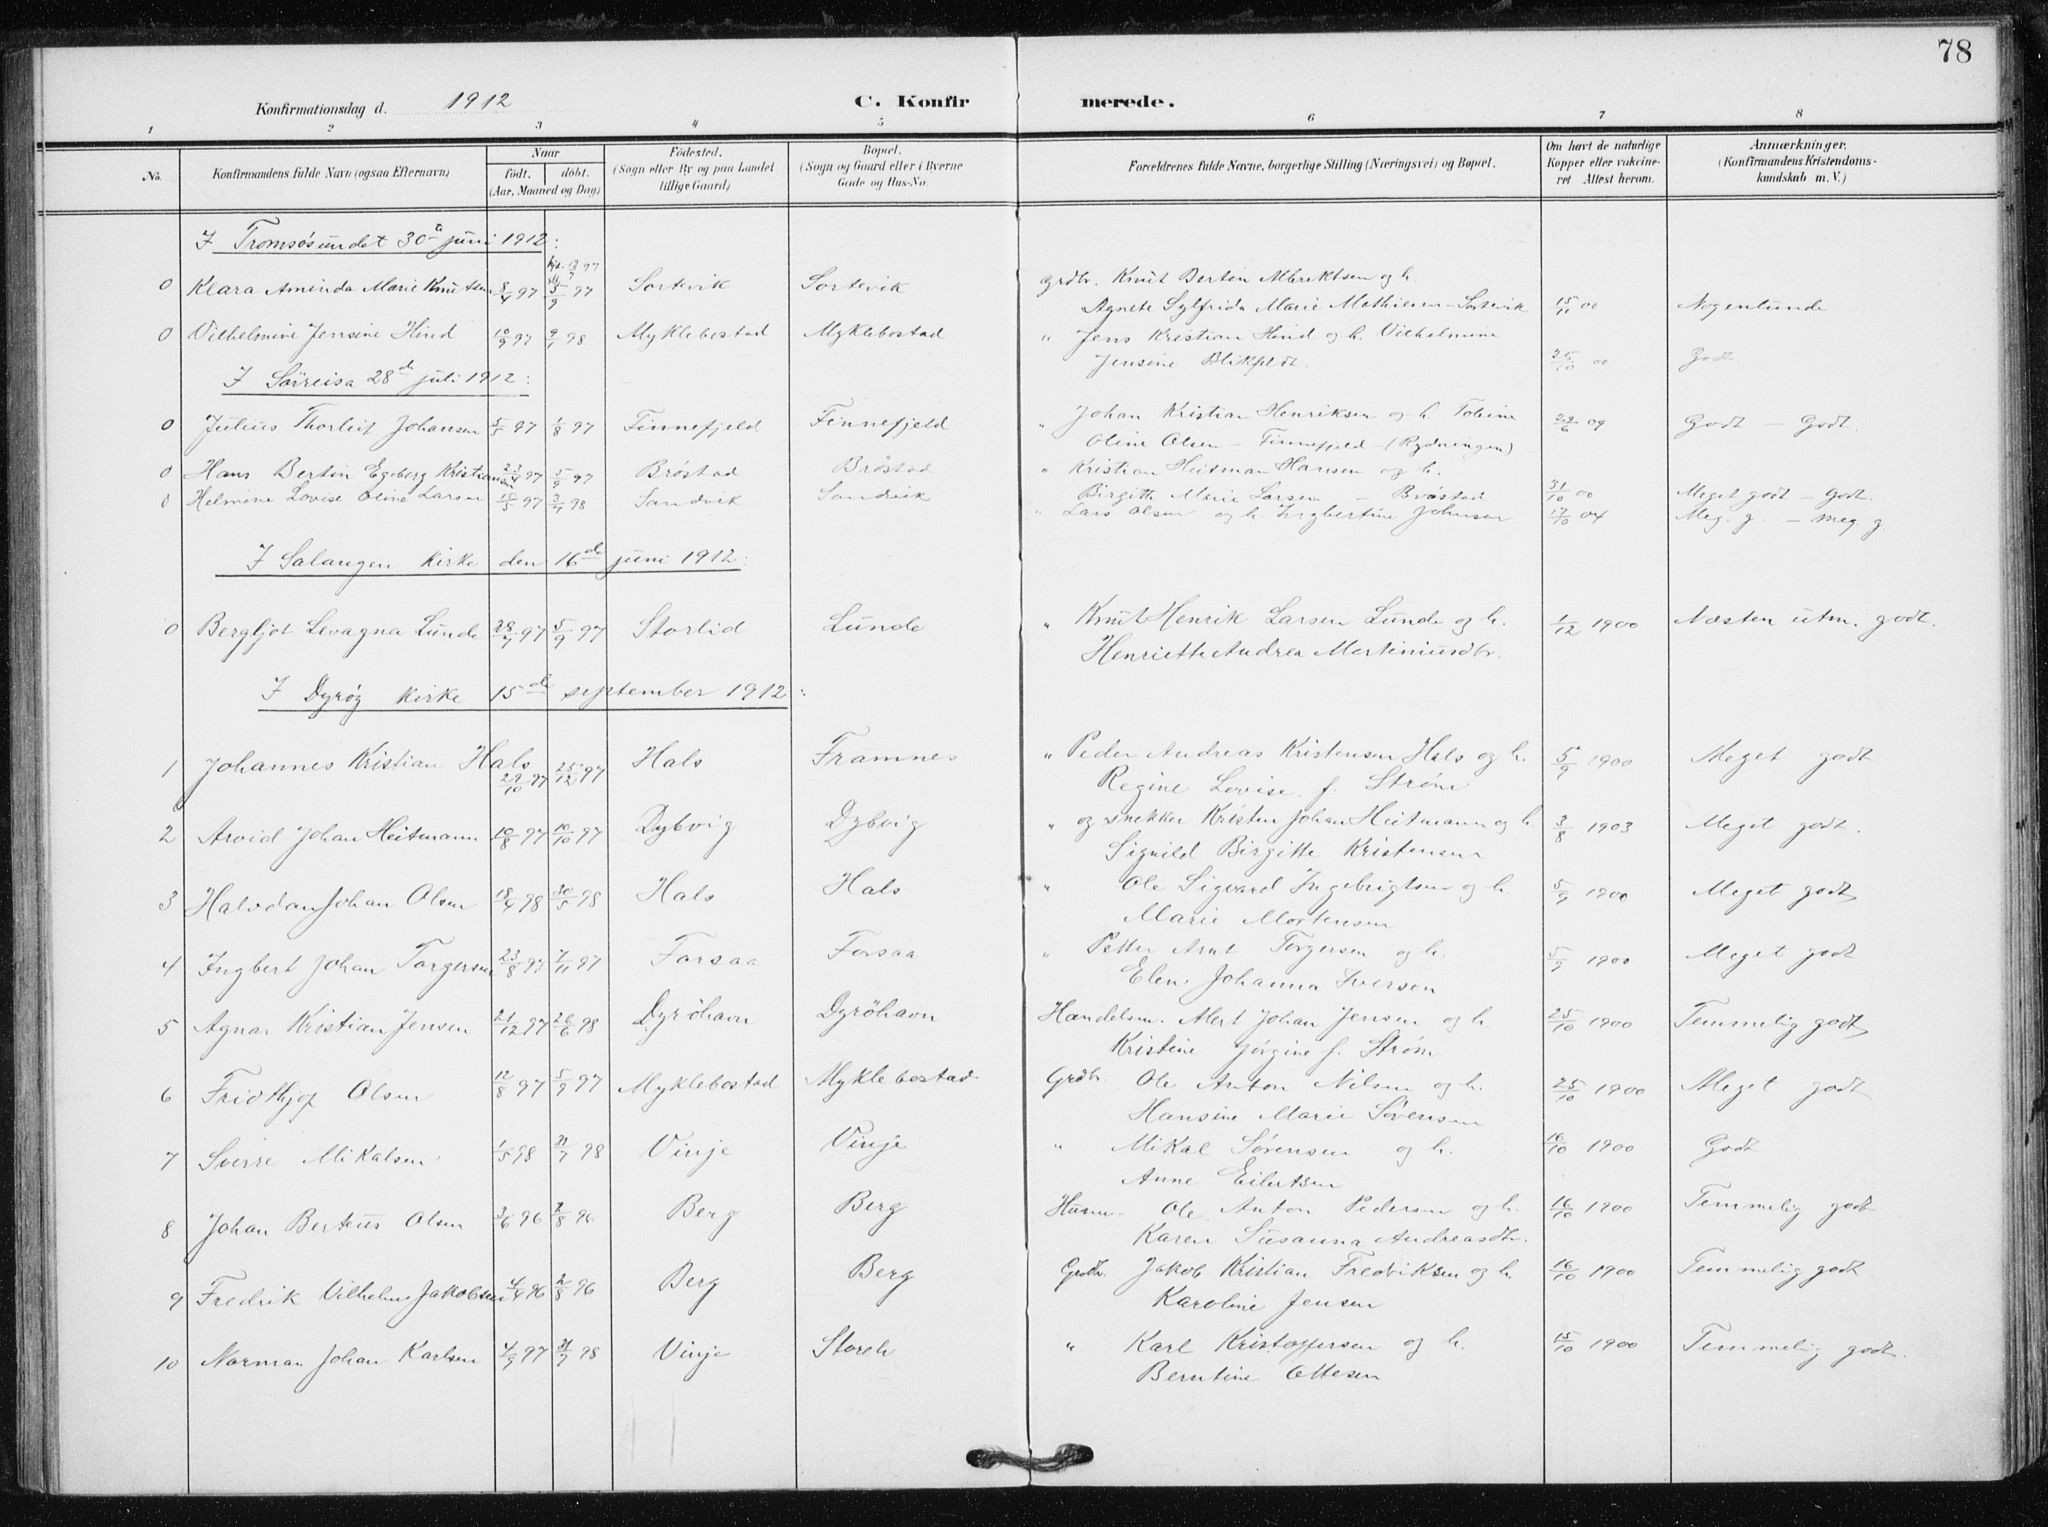 78
Konfirmationsdag d. 1912
C. Konfirmerede.
1 2 3 4 5 6 7 8
No. Konfirmandens fulde Navn (ogsaa Efternavn) Naar født. døbt. (Aar, Maaned og Dag) Fødested. (Sogn eller By og paa Landet tillige Gaard) Bopæl. (Sogn og Gaard eller i Byerne Gade og Hus-No. Forældrenes fulde Navne, borgerlige Stilling (Næringsvei) og Bopæl. Om havt de naturlige Kopper eller vakcineret. Attest herom. Anmærkninger. (Konfirmandens Kristendomskundskab m. V.)
I Tromsøsundet 30te juni 1912:
hjd. 17/7 97
0 Klara Aminda Marie Knutsen 8/4 97 5/9 97 Sortevik Sortevik grdbr. Knut Berten Albriktsen og h.
Agnete Sylfrida Marie Mathiesen - Sortevik 15/11 00 Nogenlunde
0 Vilhelmine Jensine Hind 10/9 97 9/1 98 Myklebostad Myklebostad " Jens Kristian Hind og h. Vilhelmine
Jensine Blikfeldt. 25/10 00 Godt.
I Sørreisa 28de juli 1912:
0 Julius Thorleif Johansen 5/5 97 1/8 97 Finnefjeld Finnefjeld " Johan Kristian Henriksen og h. Tobine
Oline Olsen - Finnefjeld - (Rydningen) 29/6 09 Godt - Godt.
0 Hans Bertin Egeberg Kristiansen 23/4 97 5/9 97 Brøstad Brøstad " Kristian Heitman Hansen og h.
Birgitte Marie Larsen - Brøstad 31/10 00 Meget godt - Godt.
0 Helmine Lovise Oline Larsen 10/5 97 3/7 98 Sandvik Sandvik " Lars Olsen og h. Ingbertine Johnsen 17/10 04 Meg. g. - meg. g.
I Salangen kirke den 16de juni 1912:
0 Bergljot Levagna Lunde 28/7 97 5/9 97 Storlid Lunde " Knut Henrik Larsen Lunde og h.
Henriette Andrea Martiniusdtr. 1/12 1900 Næsten utm. godt.
I Dyrøy kirke 15de september 1912:
1 Johannes Kristian Hals 29/10 97 25/12 97 Hals Framnes " Peder Andreas Kristensen Hals og h.
Regine Lovise f. Strøm 5/9 1900 Meget godt
2 Arvid Johan Heitmann 10/8 97 10/10 97 Dybvig Dybvig " og snekker Kristen Johan Heitmann og h.
Signild Birgitte Kristensen 3/8 1903 Meget godt.
3 Halvdan Johan Olsen 18/4 98 30/5 98 Hals Hals " Ole Sigvard Ingebrigtsen og h.
Marie Mortensen 5/9 1900 Meget godt
4 Ingbert Johan Torgersen 23/8 97 7/11 97 Forsaa Forsaa " Petter Arnt Torgersen og h.
Elen Johanna Iversen 5/9 1900 Meget godt
5 Agnar Kristian Jensen 21/12 97 26/6 98 Dyröhavn Dyröhavn Handelsm. Albert Johan Jensen og h.
Kristine Jørgine f. Strøm 25/10 1900 Temmelig godt
6 Fridthjof Olsen 12/8 97 5/9 97 Myklebostad Myklebostad Grdbr. Ole Anton Nilsen og h.
Hansine Marie Sørensen 25/10 1900 Meget godt
7 Sverre Mikalsen 1/5 98 31/7 98 Vinje Vinje " Mikal Sørensen og h.
Anne Eilertsen 16/10 1900 Godt
8 Johan Berteus Olsen 3/6 96 2/8 96 Berg Berg Husm. Ole Anton Pedersen og h.
Karen Susanna Andreasdtr. 16/10 1900 Temmelig godt
9 Fredrik Vilhelm Jakobsen 4/4 96 2/8 96 Berg Berg Grdbr. Jakob Kristian Fredriksen og h.
Karoline Jensen 16/10 1900 Temmelig godt
10 Norman Johan Karlsen 4/9 97 31/7 98 Vinje " Karl Kristoffersen og h.
Berntine Ottesen 15/10 1900 Temmelig godt.